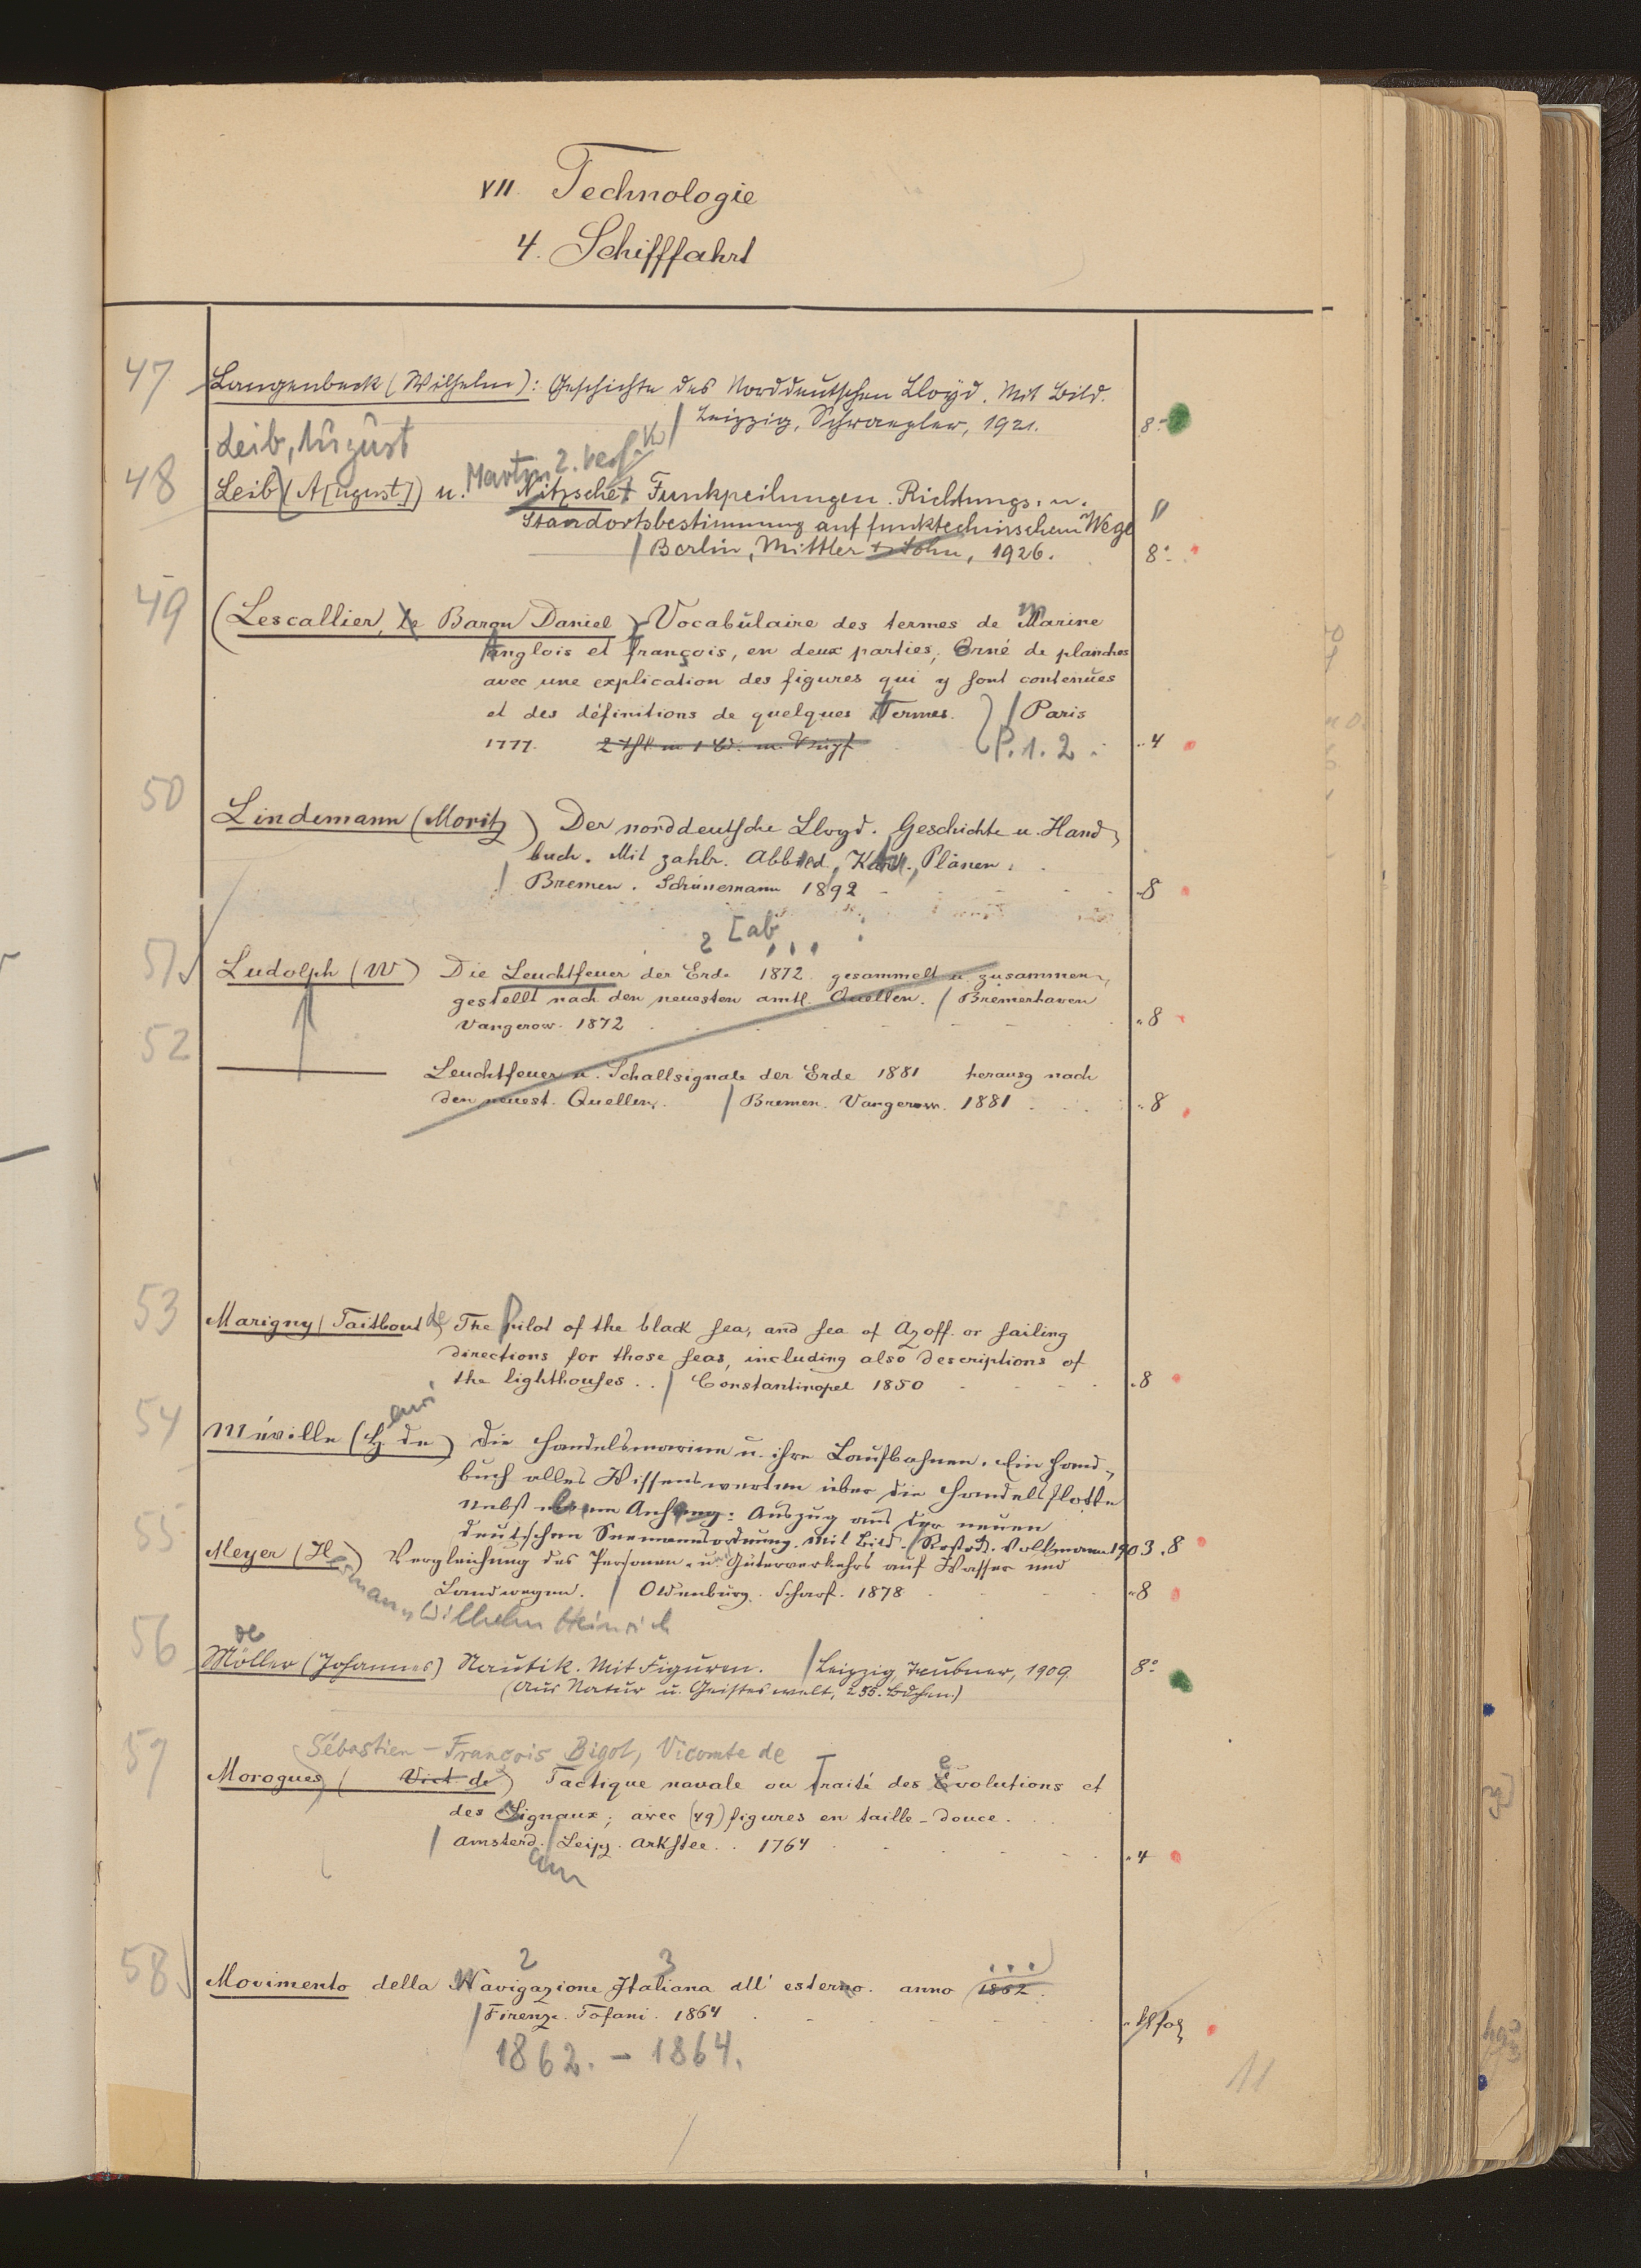 VII. Technologie
4. Schifffahrt
47 Langenbeck (Wilhelm): Geschichte des Norddeutschen Lloyd. Mit Bild.
/ Leipzig, Schwaegler, 1921. 8°
Leib, August
48 Leib (A[ugust]) u. Martin Nitzsche 2. Verf. Funkpeilungen. Richtungs- u.
Standortsbestimmung auf funktechnischem Wege
/ Berlin, Mittler & Sohn, 1926. 8°
49 (Lescallier, le Baron Daniel) Vocabulaire des termes de Marine
Anglois et françois, en deux parties, Orné de planches
avec une explication des figures qui y sont contenües
et des définitions de quelques Termes. / Paris
1777. P. 1. 2. 4
50 Lindemann (Moritz) Der norddeutsche Lloyd. Geschichte u. Hand-
buch. Mit zahlr. Abbild, Kart., Plänen.
/ Bremen. Schünemann 1892 8
2 [ab ...
51 Ludolph (W) Die Leuchtfeuer der Erde 1872 gesammelt u. zusammen-
gestellt nach den neuesten amtl. Quellen. / Bremerhaven
Vangerow. 1872 8
52 ——— Leuchtfeuer u. Schallsignale der Erde 1881 herausg nach
den neuest. Quellen. / Bremen. Vangerow. 1881 8
53 Marigny (Taitbout de) The Pilot of the black sea, and sea of Azoff. or sailing
directions for those seas, including also descriptions of
the lighthouses.. / Constantinopel 1850 8
enri
54 Méville (H. de) Die Handelsmarine u. ihre Laufbahnen. Ein Hand-
buch alles Wissenswerten über die Handelsflotte
nebst einem Anhang: Auszug aus der neuen
deutschen Seemannsordnung. Mit Bild. / Rostock. Volkmann 1903. 8
55 Meyer (Hermann Wilhelm Heinrich) Vergleichung des Personen- u. Güterverkehrs auf Wasser und
Landwegen. / Oldenburg. Scharf. 1878 8
56 Möller (Johannes) Nautik. Mit Figuren. / Leipzig, Teubner, 1909. 8°
oe
(Aus Natur u. Geisteswelt, 255. Bdchen.)
Sébastien-François Bigot, Vicomte de
57 Morogues (Vict. de) Tactique navale ou Traité des Evolutions et
des Signaux; avec (49) figures en taille-douce.
/ Amsterd. / Leipz. Arkstee.. 1764 4
am
2 3 ...
58 Movimento della Navigazione Italiana all' estero. anno 1862.
/ Firenze. Tofani. 1864
1862. - 1864.
11